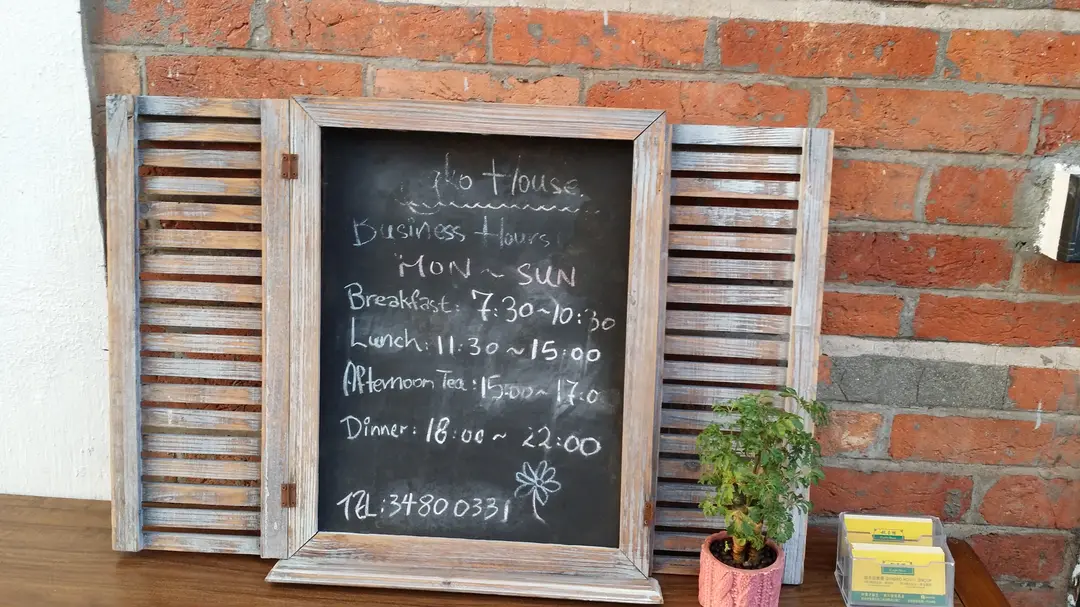 House
Business Hours
MON ~ SUN
Breakfast: 7:30~10:30
Lunch: 11:30 ~ 15:00
Afternoon Tea: 15:00~ 17:0
Dinner: 18:00~ 22:00
TEL: 3480 0331